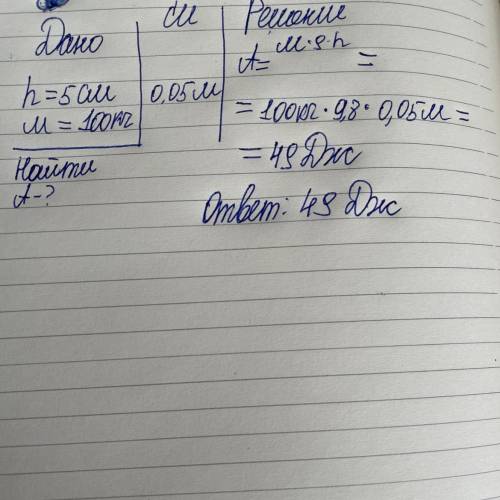 Дано
си
Решение
h = 5 см
0,05 м
м = 100 кг
A = м · g · h =
= 100 кг · 9,8 · 0,05 м =
= 49 Дж
Найти
A - ?
Ответ: 49 Дж